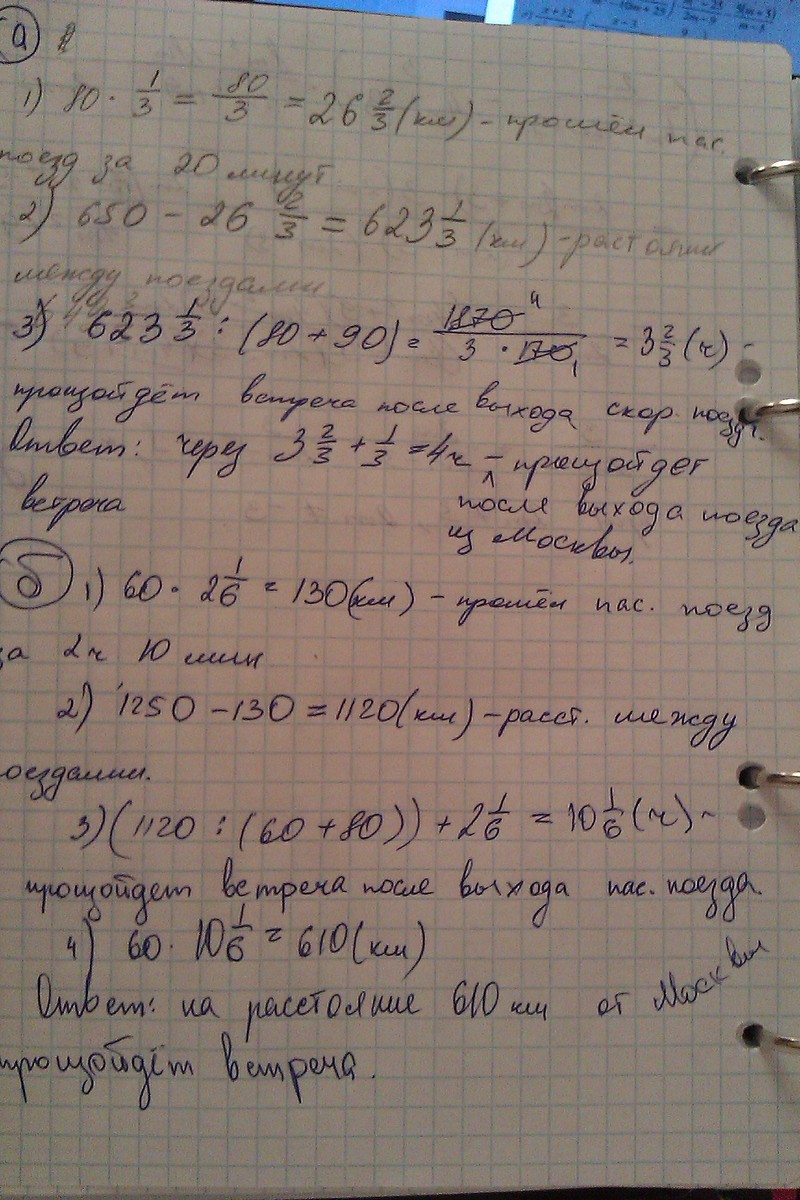 а
1) 80 · 1/3 = 80/3 = 26 2/3 (км) - прошёл пас.
поезд за 20 минут
2) 650 - 26 2/3 = 623 1/3 (км) - растояние
между поездами
3) 623 1/3 : (80 + 90) = 1870 4 / 3 · 170 1 = 3 2/3 (ч) -
произойдёт встреча после выхода скор. поезд.
Ответ: через 3 2/3 + 1/3 = 4ч - произойдет
встреча после выхода поезда
из Москвы.
б 1) 60 · 2 1/6 = 130 (км) - прошёл пас. поезд
за 2ч 10 мин
2) 1250 - 130 = 1120 (км) - расст. между
оездами.
3) (1120 : (60 + 80)) + 2 1/6 = 10 1/6 (ч) -
произойдет встреча после выхода пас. поезда.
4) 60 · 10 1/6 = 610 (км)
Ответ: на расстояние 610 км от Москвы
произойдёт встреча.